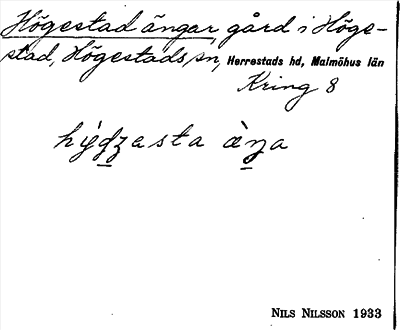 Högestad ängar, gård i Höge-
stad, Högestads sn, Herrestads hd, Malmöhus län
Kring 8
Nils Nilsson 1933